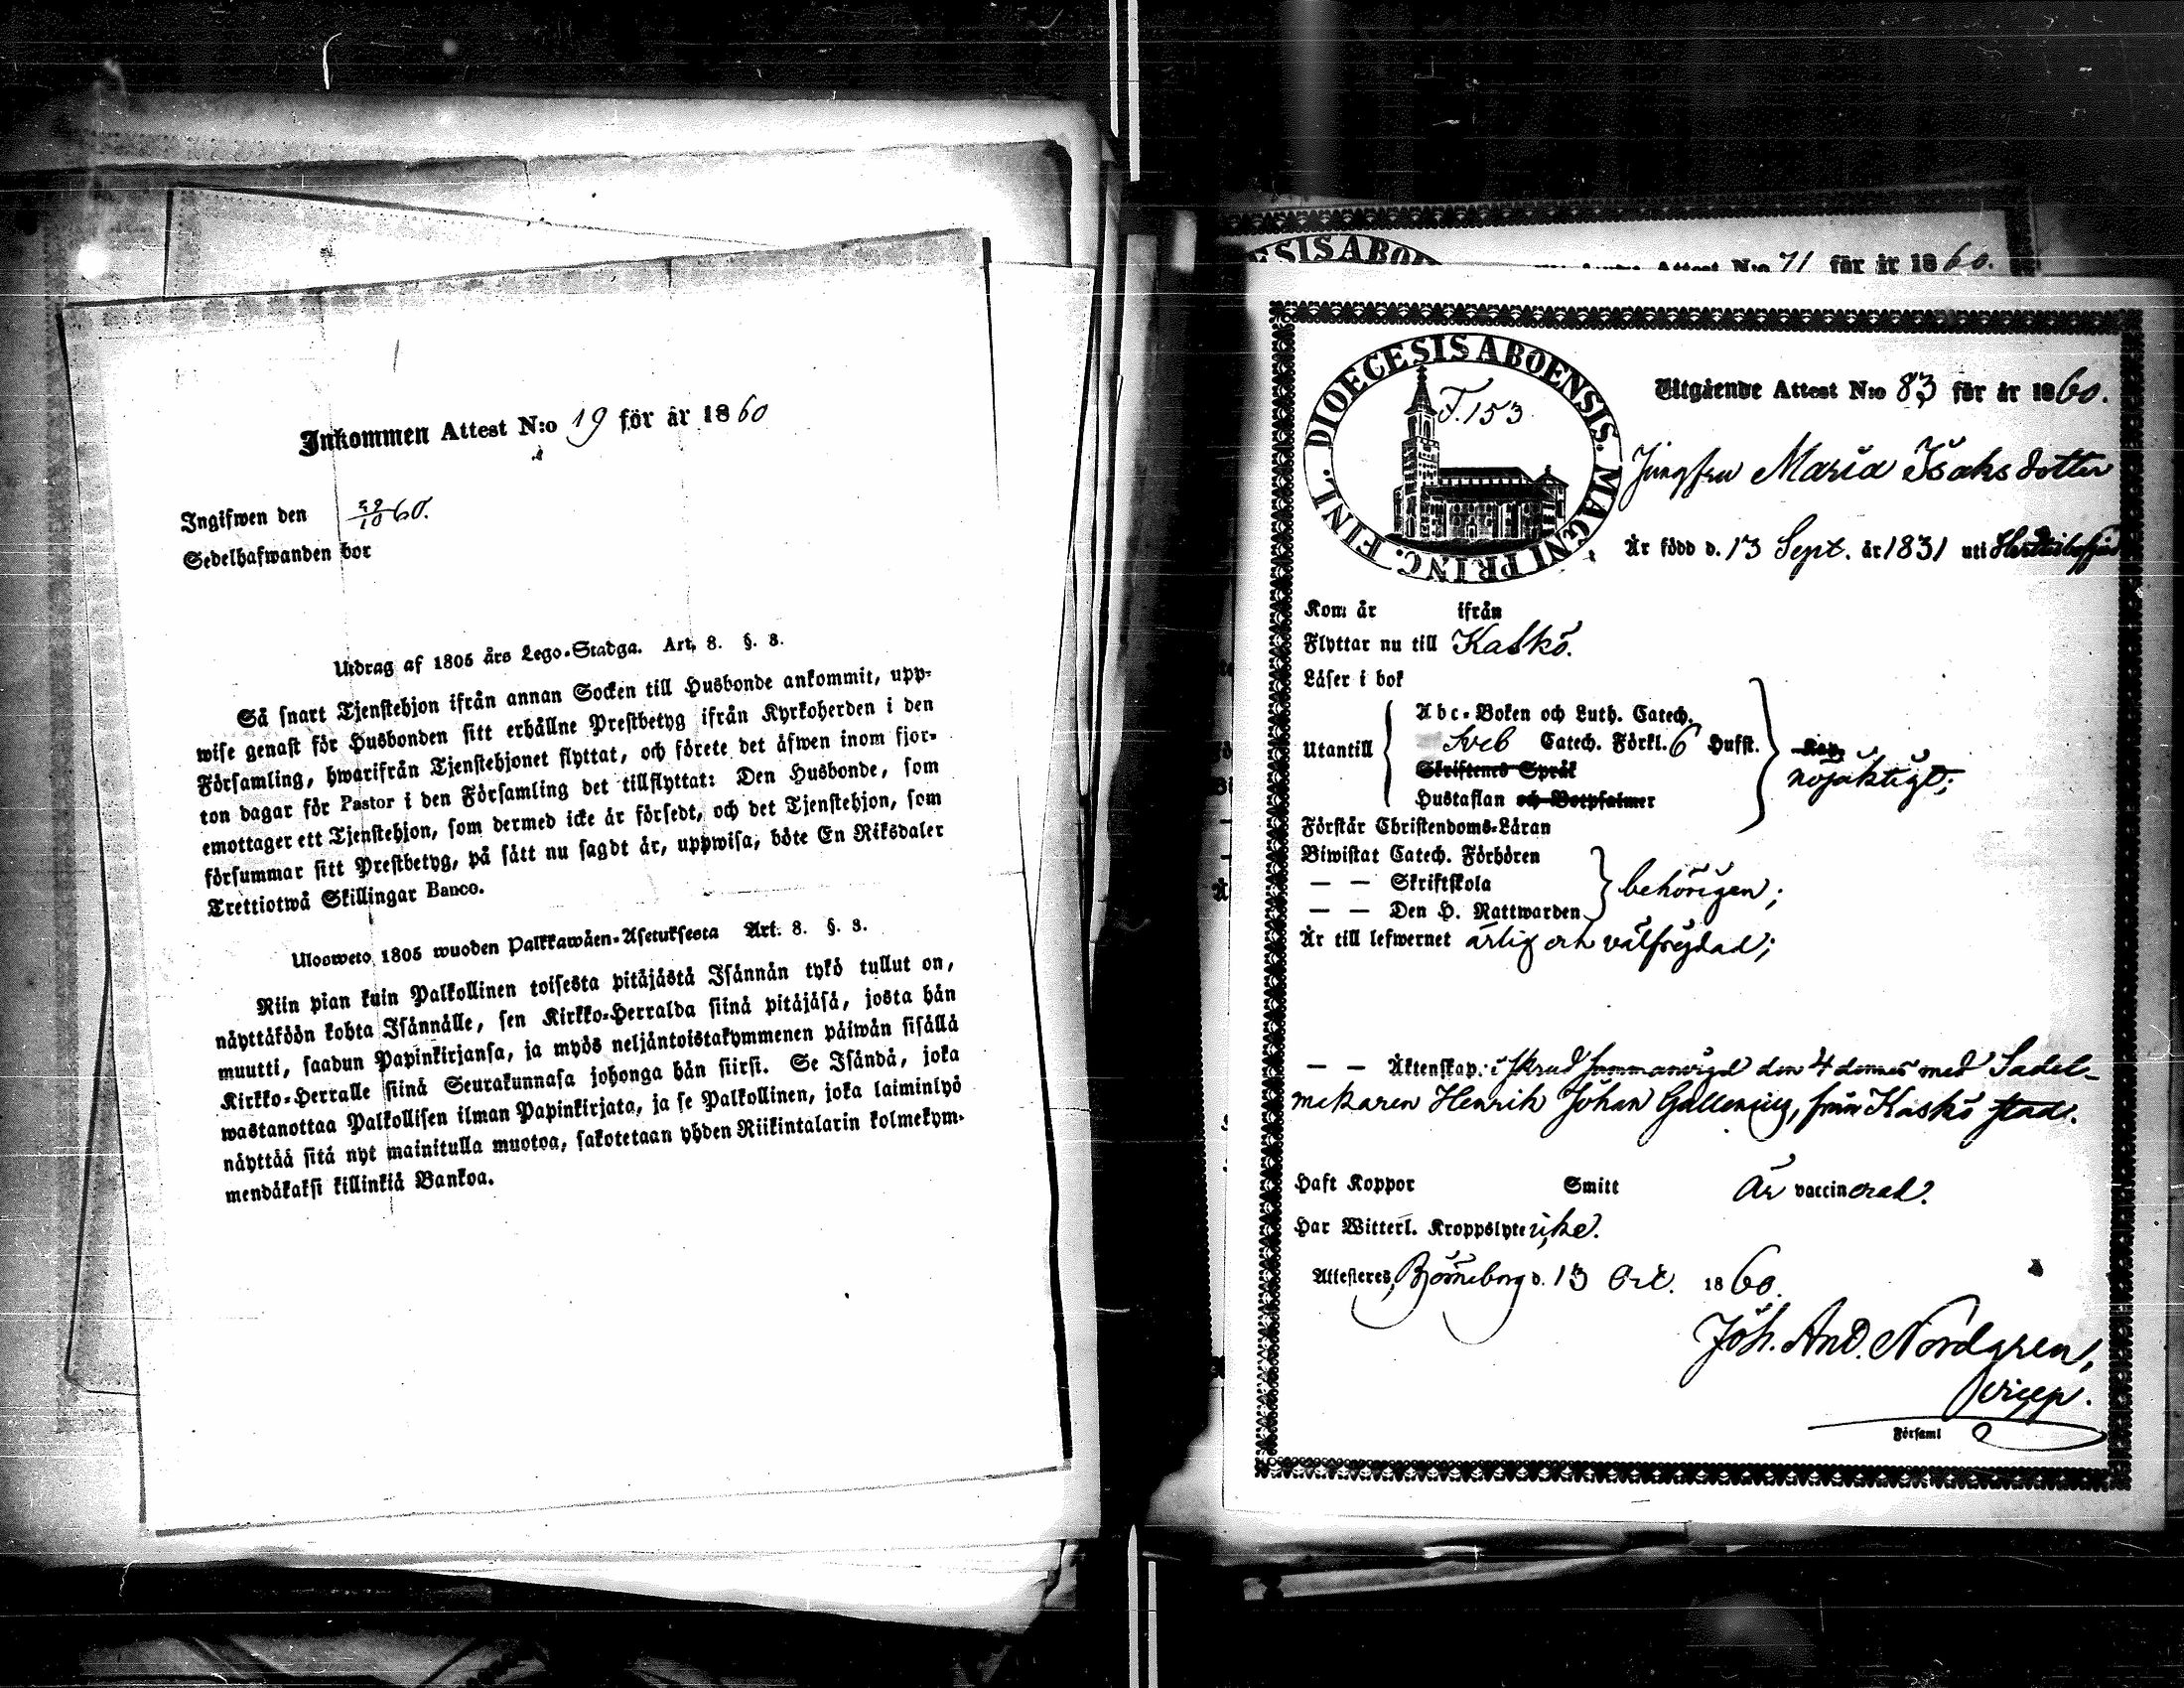 Inkommen Attest N:o 19 för år 1860
Ingifwen den 29/10 60.
Sedelhafwanden bor
Utdrag af 1805 års Lego-Stadga. Art. 8. §. 8.
Så snart Tjenstehjon ifrån annan Socken till Husbonde ankommit, upp-
wise genast för Husbonden sitt erhållne Prestbetyg ifrån Kyrkoherden i den
Församling, hwarifrån Tjenstehjonet flyttat, och förete det äfwen inom fjor-
ton dagar för Pastor i den Församling det tillflyttat: Den Husbonde, som
emottager ett Tjenstehjon, som dermed icke är försedt, och det Tjenstehjon, som
försummar sitt Prestbetyg, på sätt nu sagdt är, uppwisa, böte En Riksdaler
Trettiotwå Skillingar Banco.
Uloosweto 1805 wuoden Palkkawäen-Asetuksesta Art. 8. §. 8.
Niin pian kuin Palkollinen toisesta pitäjästä Isännän tykö tullut on,
näyttäköön kohta Isännälle, sen Kirkko-Herralda siinä pitäjäsä, josta hän
muutti, saadun Papinkirjansa, ja myös neljäntoistakymmenen päiwän sisällä
Kirkko-Herralle siinä Seurakunnasa johonga hän siirsi. Se Isändä, joka
wastanottaa Palkollisen ilman Papinkirjata, ja se Palkollinen, joka laiminlyö
näyttää sitä nyt mainitulla muotoa, sakotetaan yhden Riikintalarin kolmekym-
mendäkaksi killinkiä Bankoa.
ESIS ABO
Attest N:o 71 för år 1860.
DIOECESIS ABOENSIS. MAGNI PRINC. FINL.
F. 153
Utgående Attest N:o 83 för år 1860.
Jungfru Maria Isaksdotter
Är född d. 13 Sept. år 1831 uti
Kom år ifrån
Flyttar nu till Kaskö.
Läser i bok
Utantill
Abc-Boken och Luth. Catech.
Sveb Catech. Förkl. 6 Hufst.
Skriftenes Språk
Hustaflan och Botpsalmer
nöjaktigt;
Förstår Christendoms-Läran
Biwistat Catech. Förhören
— — Skriftskola
— — Den H. Nattwarden
behörigen;
Är till lefwernet ärlig och välfrejdad;
— — Äktenskap: i Skrud Sammanvigd den 4 dennes med Sadel-
makaren Henrik Johan från Kaskö stad.
Haft Koppor Smitt Är vaccinerad.
Har Witterl. Kroppslyte icke.
Attesteres, Björneborg d. 13 Oct. 1860.
Joh. And. Nordgren,
Församl